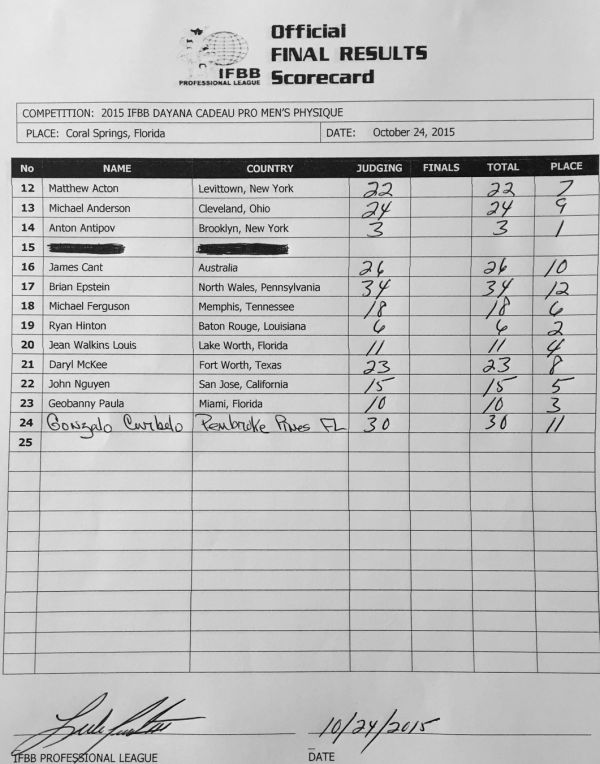 Official
FINAL RESULTS
IFBB Scorecard
PROFESSIONAL LEAGUE
COMPETITION: 2015 IFBB DAYANA CADEAU PRO MEN'S PHYSIQUE
PLACE: Coral Springs, Florida DATE: October 24, 2015
No NAME COUNTRY JUDGING FINALS TOTAL PLACE
12 Matthew Acton Levittown, New York 22 22 7
13 Michael Anderson Cleveland, Ohio 24 24 9
14 Anton Antipov Brooklyn, New York 3 3 1
15
16 James Cant Australia 26 26 10
17 Brian Epstein North Wales, Pennsylvania 34 34 12
18 Michael Ferguson Memphis, Tennessee 18 18 6
19 Ryan Hinton Baton Rouge, Louisiana 6 6 2
20 Jean Walkins Louis Lake Worth, Florida 11 11 4
21 Daryl McKee Fort Worth, Texas 23 23 8
22 John Nguyen San Jose, California 15 15 5
23 Geobanny Paula Miami, Florida 10 10 3
24 Gonzalo Curbelo Pembroke Pines FL 30 30 11
25
10/24/2015
IFBB PROFESSIONAL LEAGUE DATE